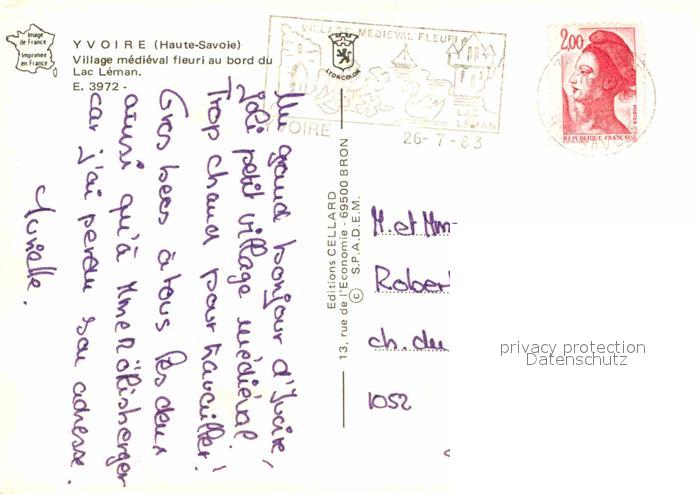 Image
de France
Imprimée
en France
YVOIRE (Haute-Savoie)
Village médiéval fleuri au bord du
Lac Léman.
E. 3972 -
VILLAGE MEDIEVAL FLEURI
YVOIRE
LAC
LEMAN
26-7-83
2,00
POSTES
REPUBLIQUE FRANÇAISE
Un grand bonjour d'Yvoire,
joli petit village médiéval
Trop chaud pour travailler!
Gros becs à tous les deux
ainsi qu'à Mme
car j'ai perdu son adresse.
Murielle.
Editions CELLARD
13, rue de l'Economie - 69500 BRON
© S.P.A.D.E.M.
M. et Mm
Rober
ch. du
1052
privacy protection
Datenschutz